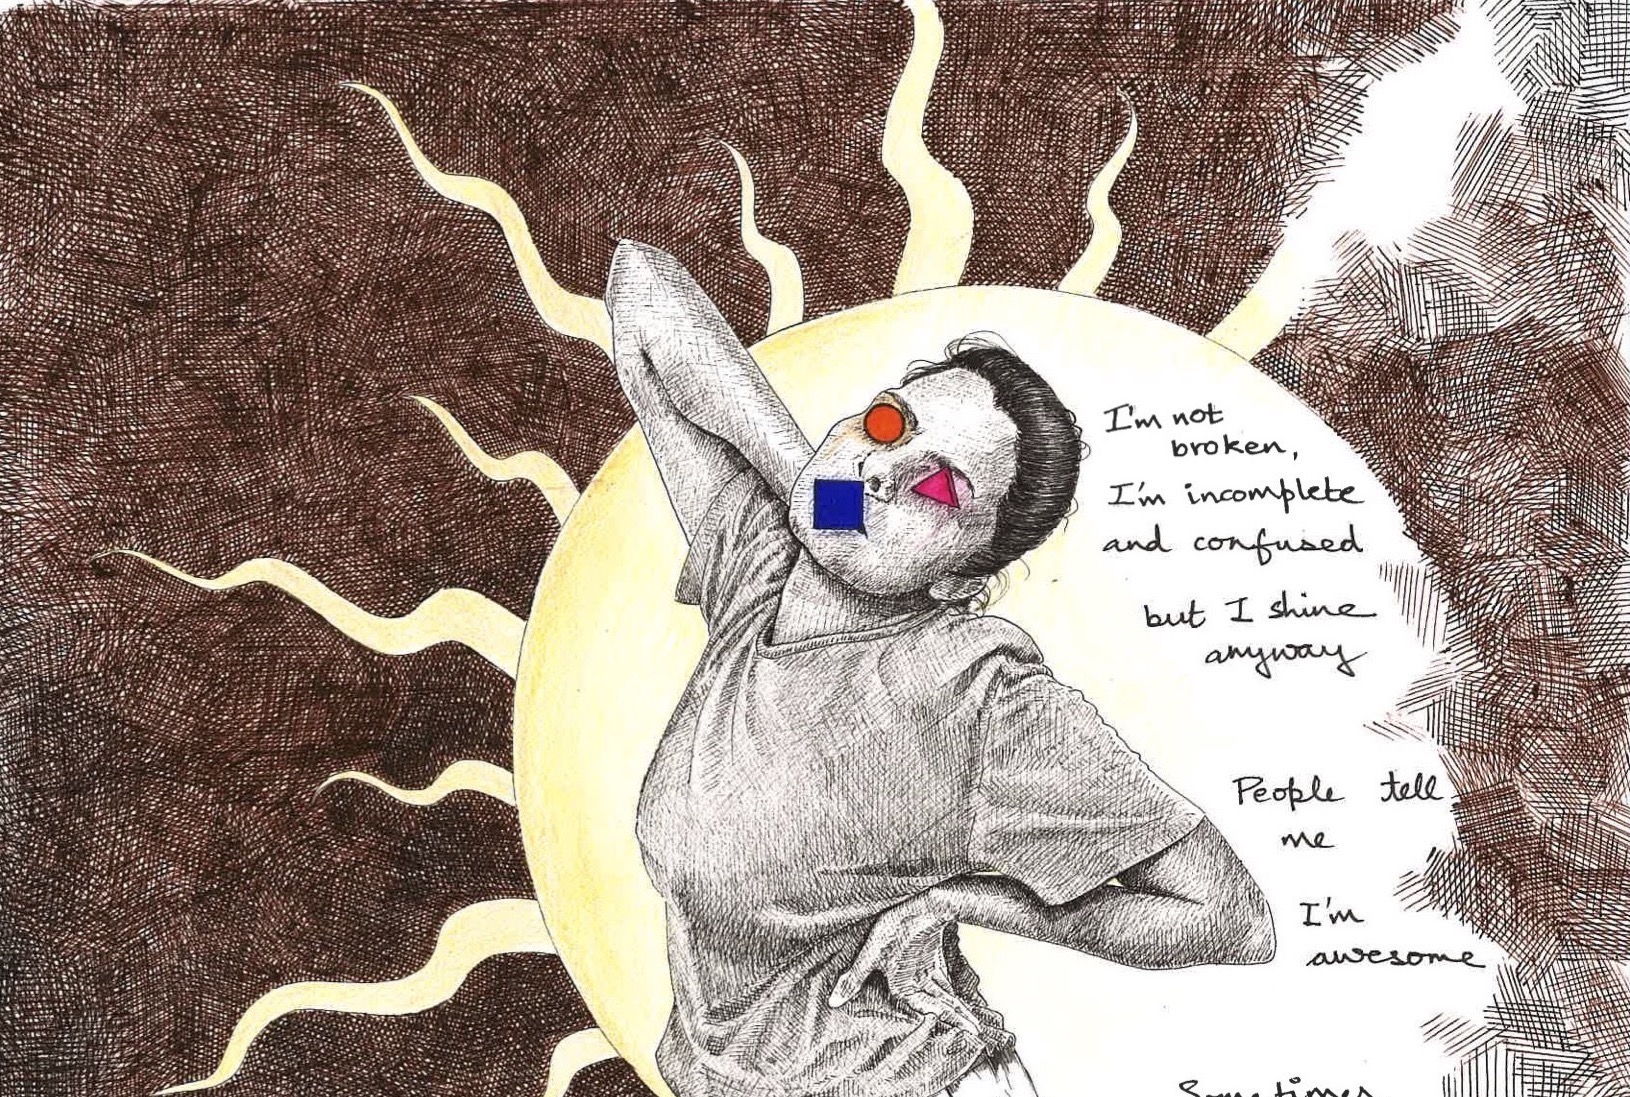 I'm not
broken,
I'm incomplete
and confused
but I shine
anyway
People tell
me
I'm
awesome
Sometimes